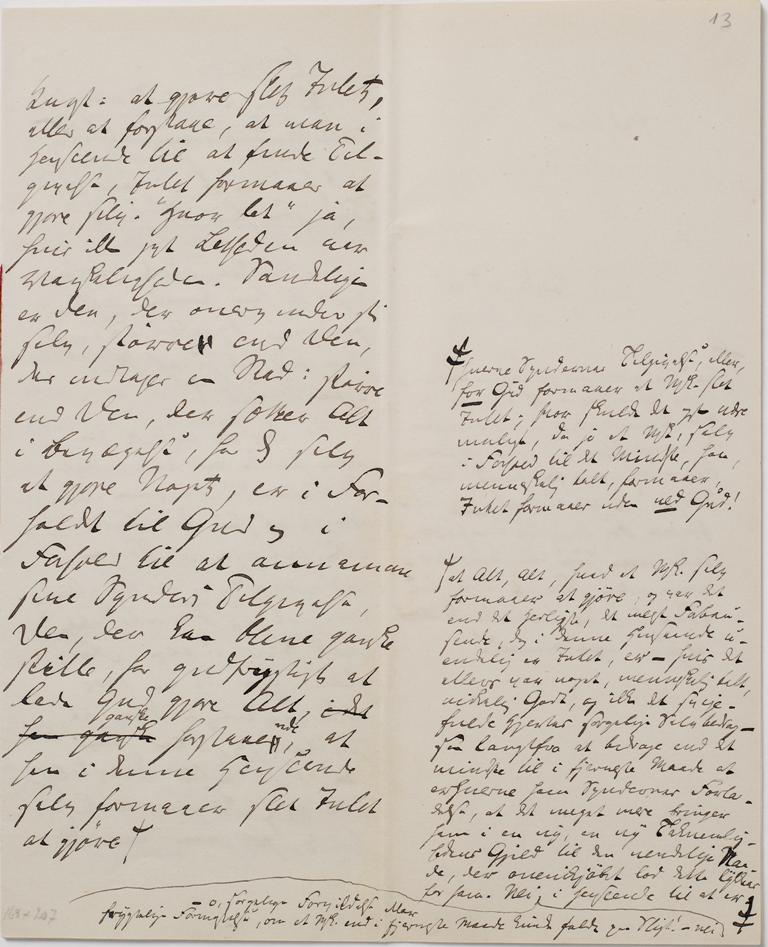 13
tungt: at gjøre slet Intet,
eller at forstaae, at man i
Henseende til at finde Til-
givelse, Intet formaaer at
gjøre selv. "Hvor let" ja,
hvis ikke just Letheden var
Vanskeligheden. Sandeligen
er den, der overvinder sig
selv, større end Den,
der indtager en Stad: større
end Den, der sætter Alt
i Bevægelse, for selv
at gjøre Noget, er i For-
holdt til Gud og i
Forhold til at annamme
sine Synders Tilgivelse,
Den, der kan blive ganske
stille, for gudfrygtigt at
lade Gud gjøre Alt, i det
han ganske ganske forstaaende, at
han i denne Henseende
selv formaaer slet Intet
at gjøre
hverve Syndernes Tilgivelse, eller,
for Gud formaaer et Msk. slet
Intet; hvor skulde det ogs være
muligt, da jo et Msk., selv
i Forhold til det Mindste, han,
menneskelig talt, formaaer,
Intet formaaer uden ved Gud!
at Alt, Alt, hvad et Msk. selv
formaaer at gjøre, og var det
end det Herligste, det meest Forbau-
sende, dog i denne Henseende u-
endelig er Intet, er – hvis det
ellers var noget, menneskelig talt,
virkelig Godt, og ikke det svige-
fulde Hjertes sørgelige Selvbedrag –
saa langtfra at bidrage end det
mindste til i fjerneste Maade at
erhverve ham Syndernes Forla-
delse, at det meget mere bringer
ham i en ny, en ny Taknemlig-
hedens Gjeld til den uendelige Naa-
de, der ovenikjøbet lod dette lykkes
for ham. Nei, i Henseende til at er-
– o, sørgelige Forvildelse, eller
frygtelige Formastelse, om et Msk. end i fjerneste Maade kunde falde paa Sligt! – nei